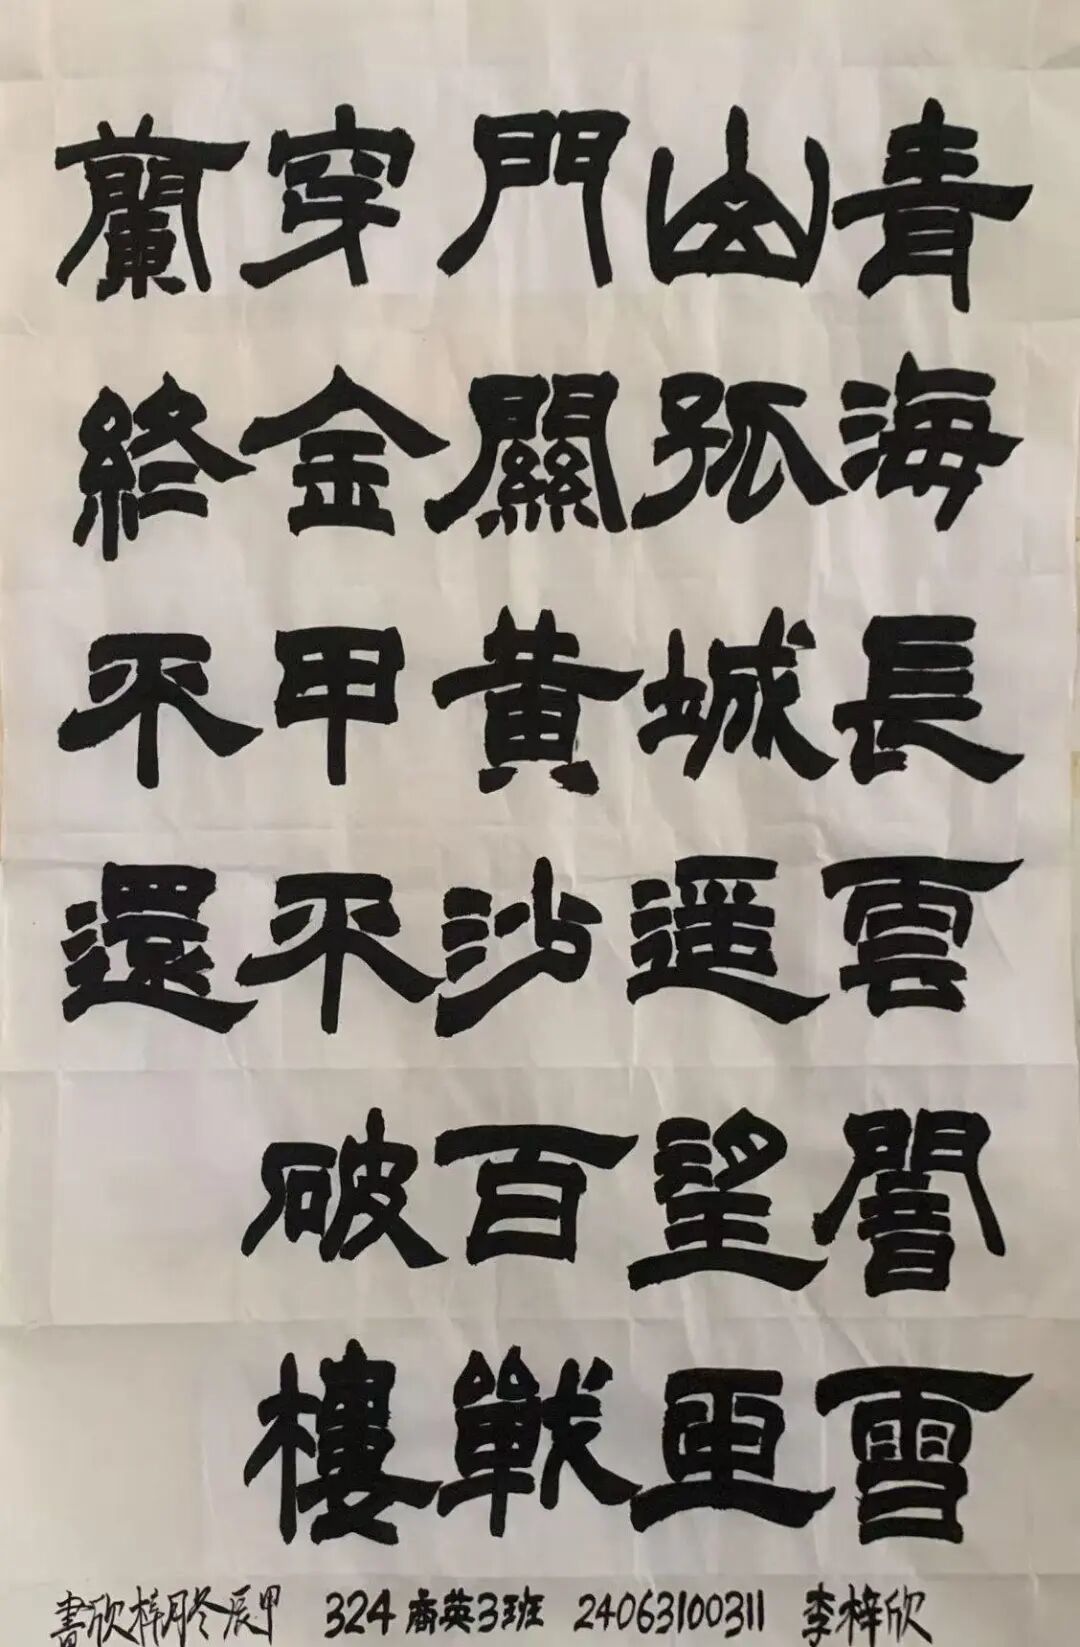 青海長雲闇雪
山孤城遥望玉
門關黄沙百戰
穿金甲不破樓
蘭終不還
甲辰冬月梓欣書
324 商英3班 24063100311 李梓欣